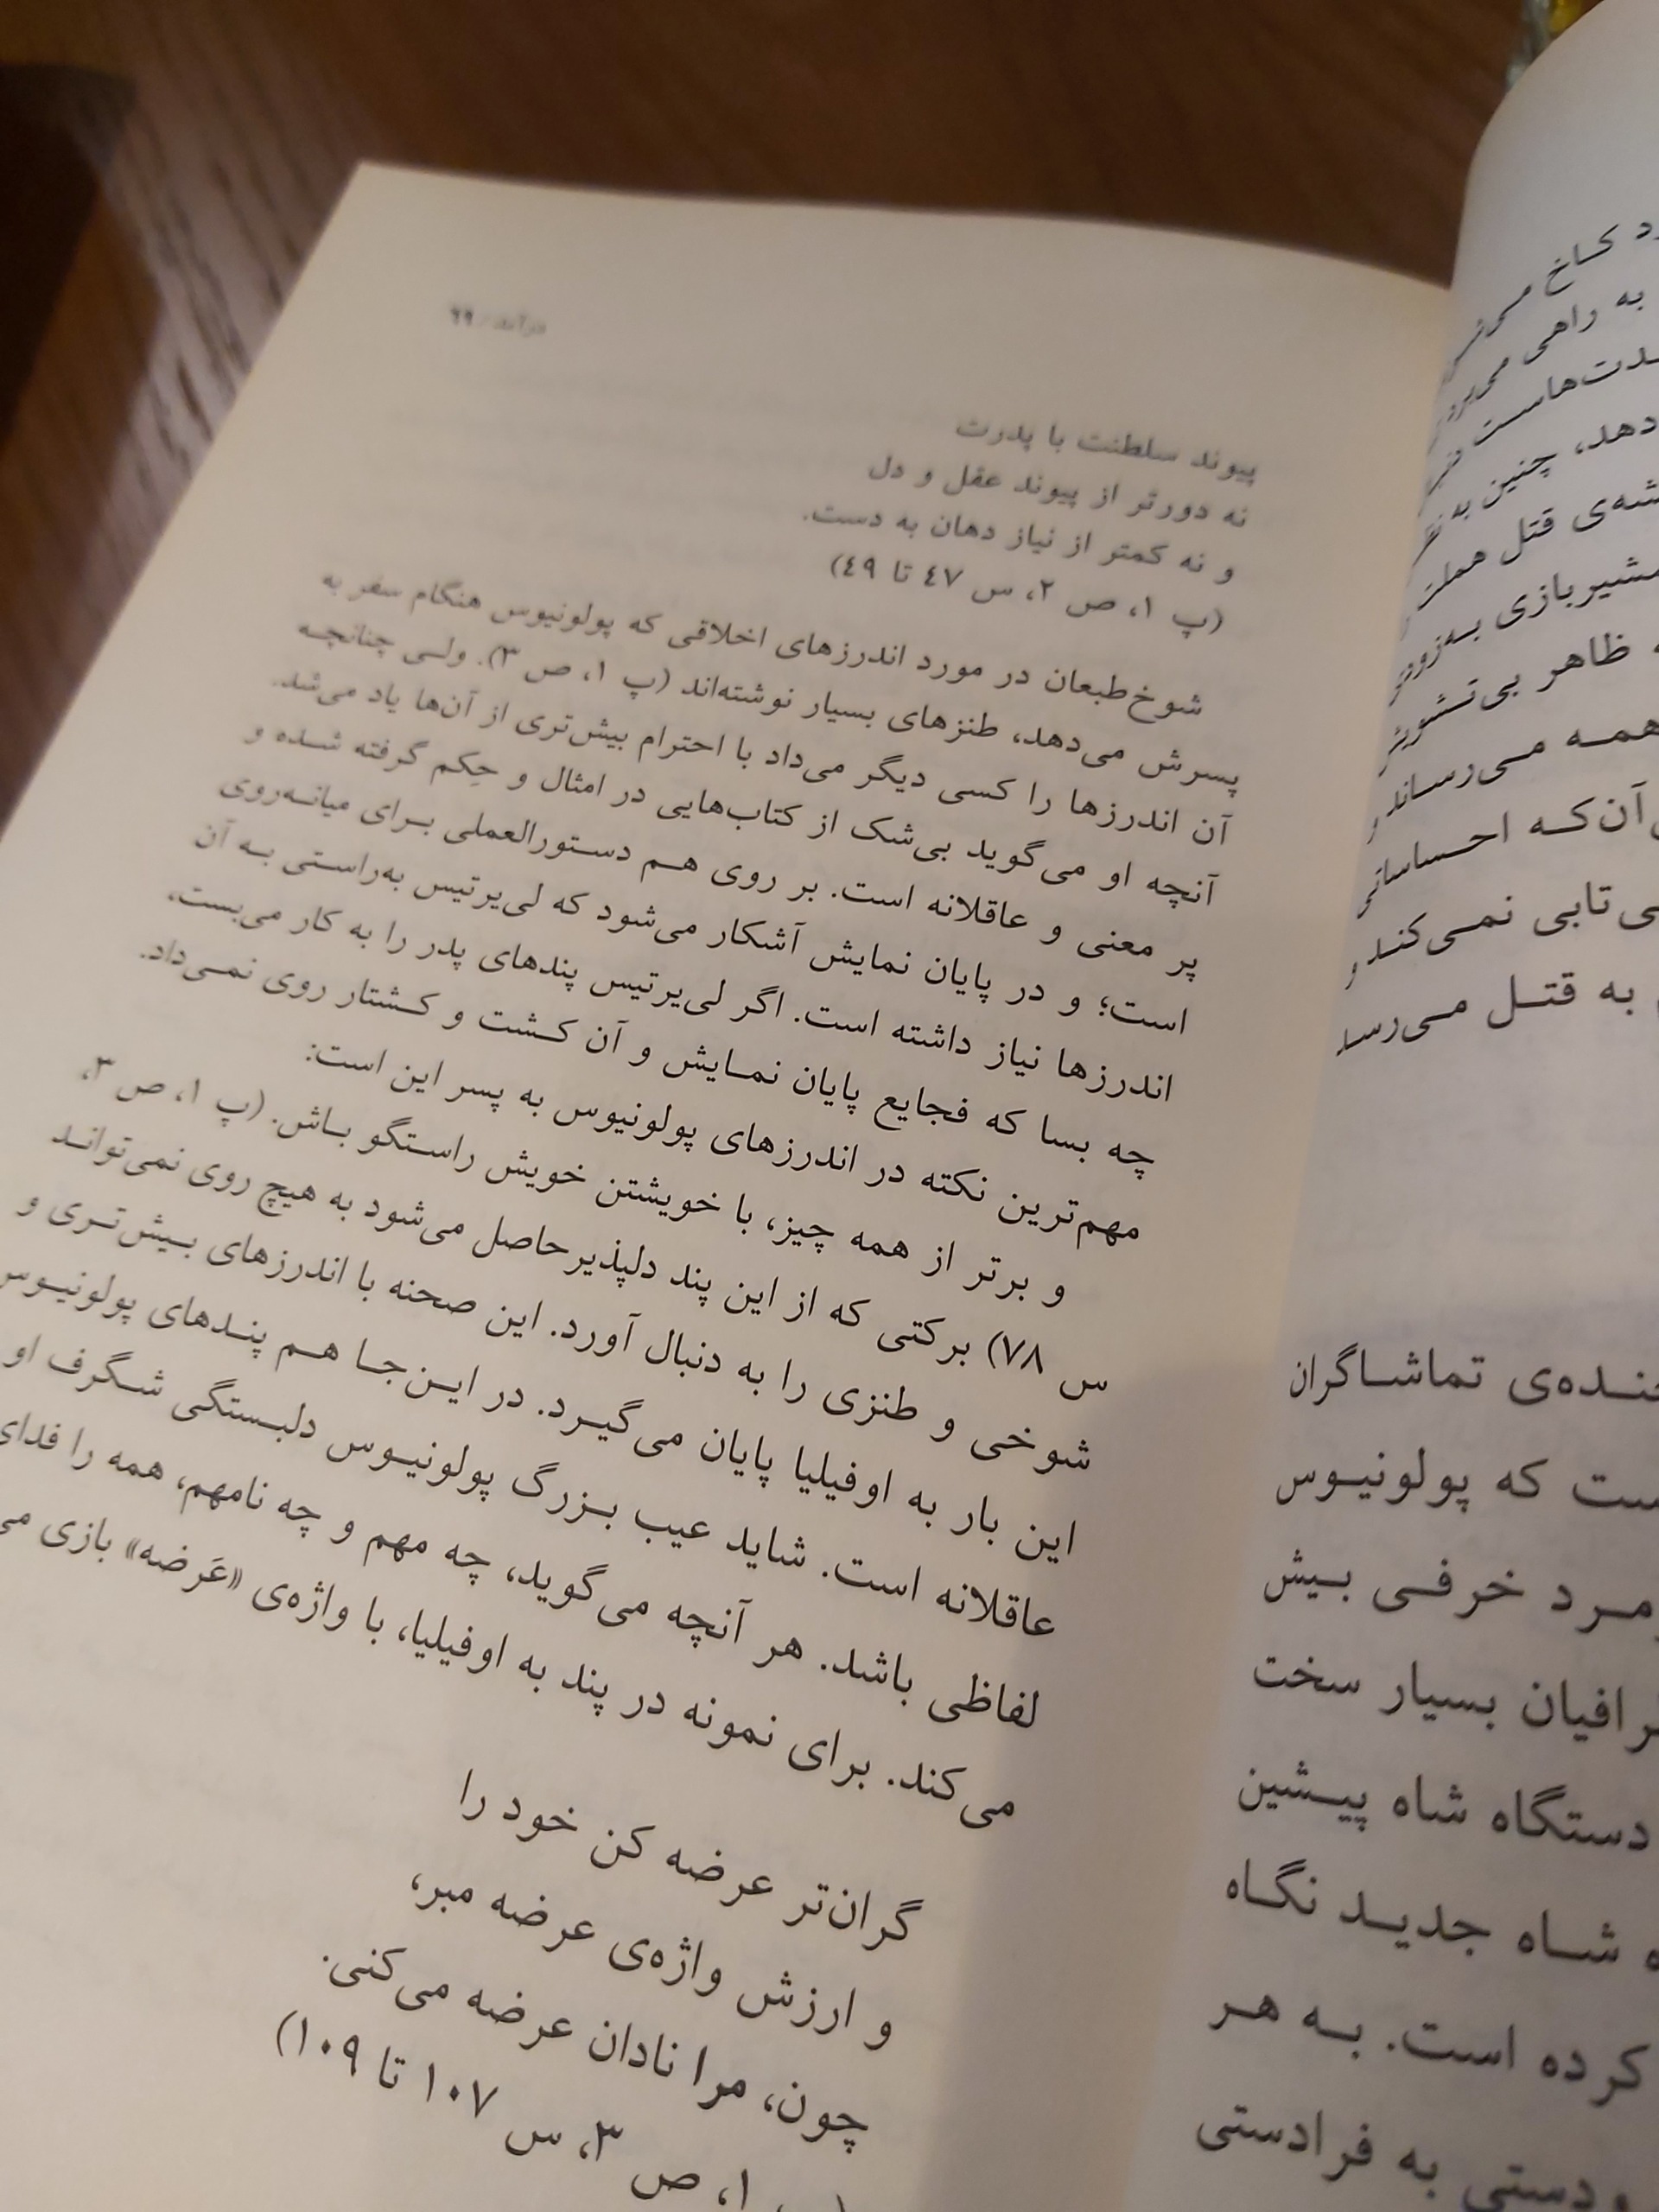 درآمد / ٦٩
پیوند سلطنت با پدرت
نه دورتر از پیوند عقل و دل
و نه کمتر از نیاز دهان به دست.
(پ ۱، ص ۲، س ٤٧ تا ٤٩)
شوخ‌طبعان در مورد اندرزهای اخلاقی که پولونیوس هنگام سفر به
پسرش می‌دهد، طنزهای بسیار نوشته‌اند (پ ۱، ص ۳). ولی چنانچه
آن اندرزها را کسی دیگر می‌داد با احترام بیش‌تری از آن‌ها یاد می‌شد.
آنچه او می‌گوید بی‌شک از کتاب‌هایی در امثال و حِکم گرفته شده و
پر معنی و عاقلانه است. بر روی هم دستورالعملی برای میانه‌روی
است؛ و در پایان نمایش آشکار می‌شود که لی‌یرتیس به‌راستی به آن
اندرزها نیاز داشته است. اگر لی‌یرتیس پندهای پدر را به کار می‌بست،
چه بسا که فجایع پایان نمایش و آن کشت و کشتار روی نمی‌داد.
مهم‌ترین نکته در اندرزهای پولونیوس به پسر این است:
و برتر از همه چیز، با خویشتن خویش راستگو باش. (پ ۱، ص ۳،
س ۷۸) برکتی که از این پند دلپذیر حاصل می‌شود به هیچ روی نمی‌تواند
شوخی و طنزی را به دنبال آورد. این صحنه با اندرزهای بیش‌تری و
این بار به اوفیلیا پایان می‌گیرد. در این‌جا هم پندهای پولونیوس
عاقلانه است. شاید عیب بزرگ پولونیوس دلبستگی شگرف او
لفاظی باشد. هر آنچه می‌گوید، چه مهم و چه نامهم، همه را فدای
می‌کند. برای نمونه در پند به اوفیلیا، با واژه‌ی «عَرضه» بازی
گران‌تر عرضه کن خود را
و ارزش واژه‌ی عرضه مبر،
چون، مرا نادان عرضه می‌کنی.
۱، ص ۳، س ۱۰۷ تا ۱۰۹)
کاخ
به راهی
دهد، چنین به
قتل
ظاهر
همه می‌رساند
آن‌که
نمی‌کند و
به قتل
تماشاگران
که پولونیوس
خرفی بیش
بسیار سخت
دستگاه شاه پیشین
شاه جدید نگاه
کرده است. به هر
دستی به فرادستی